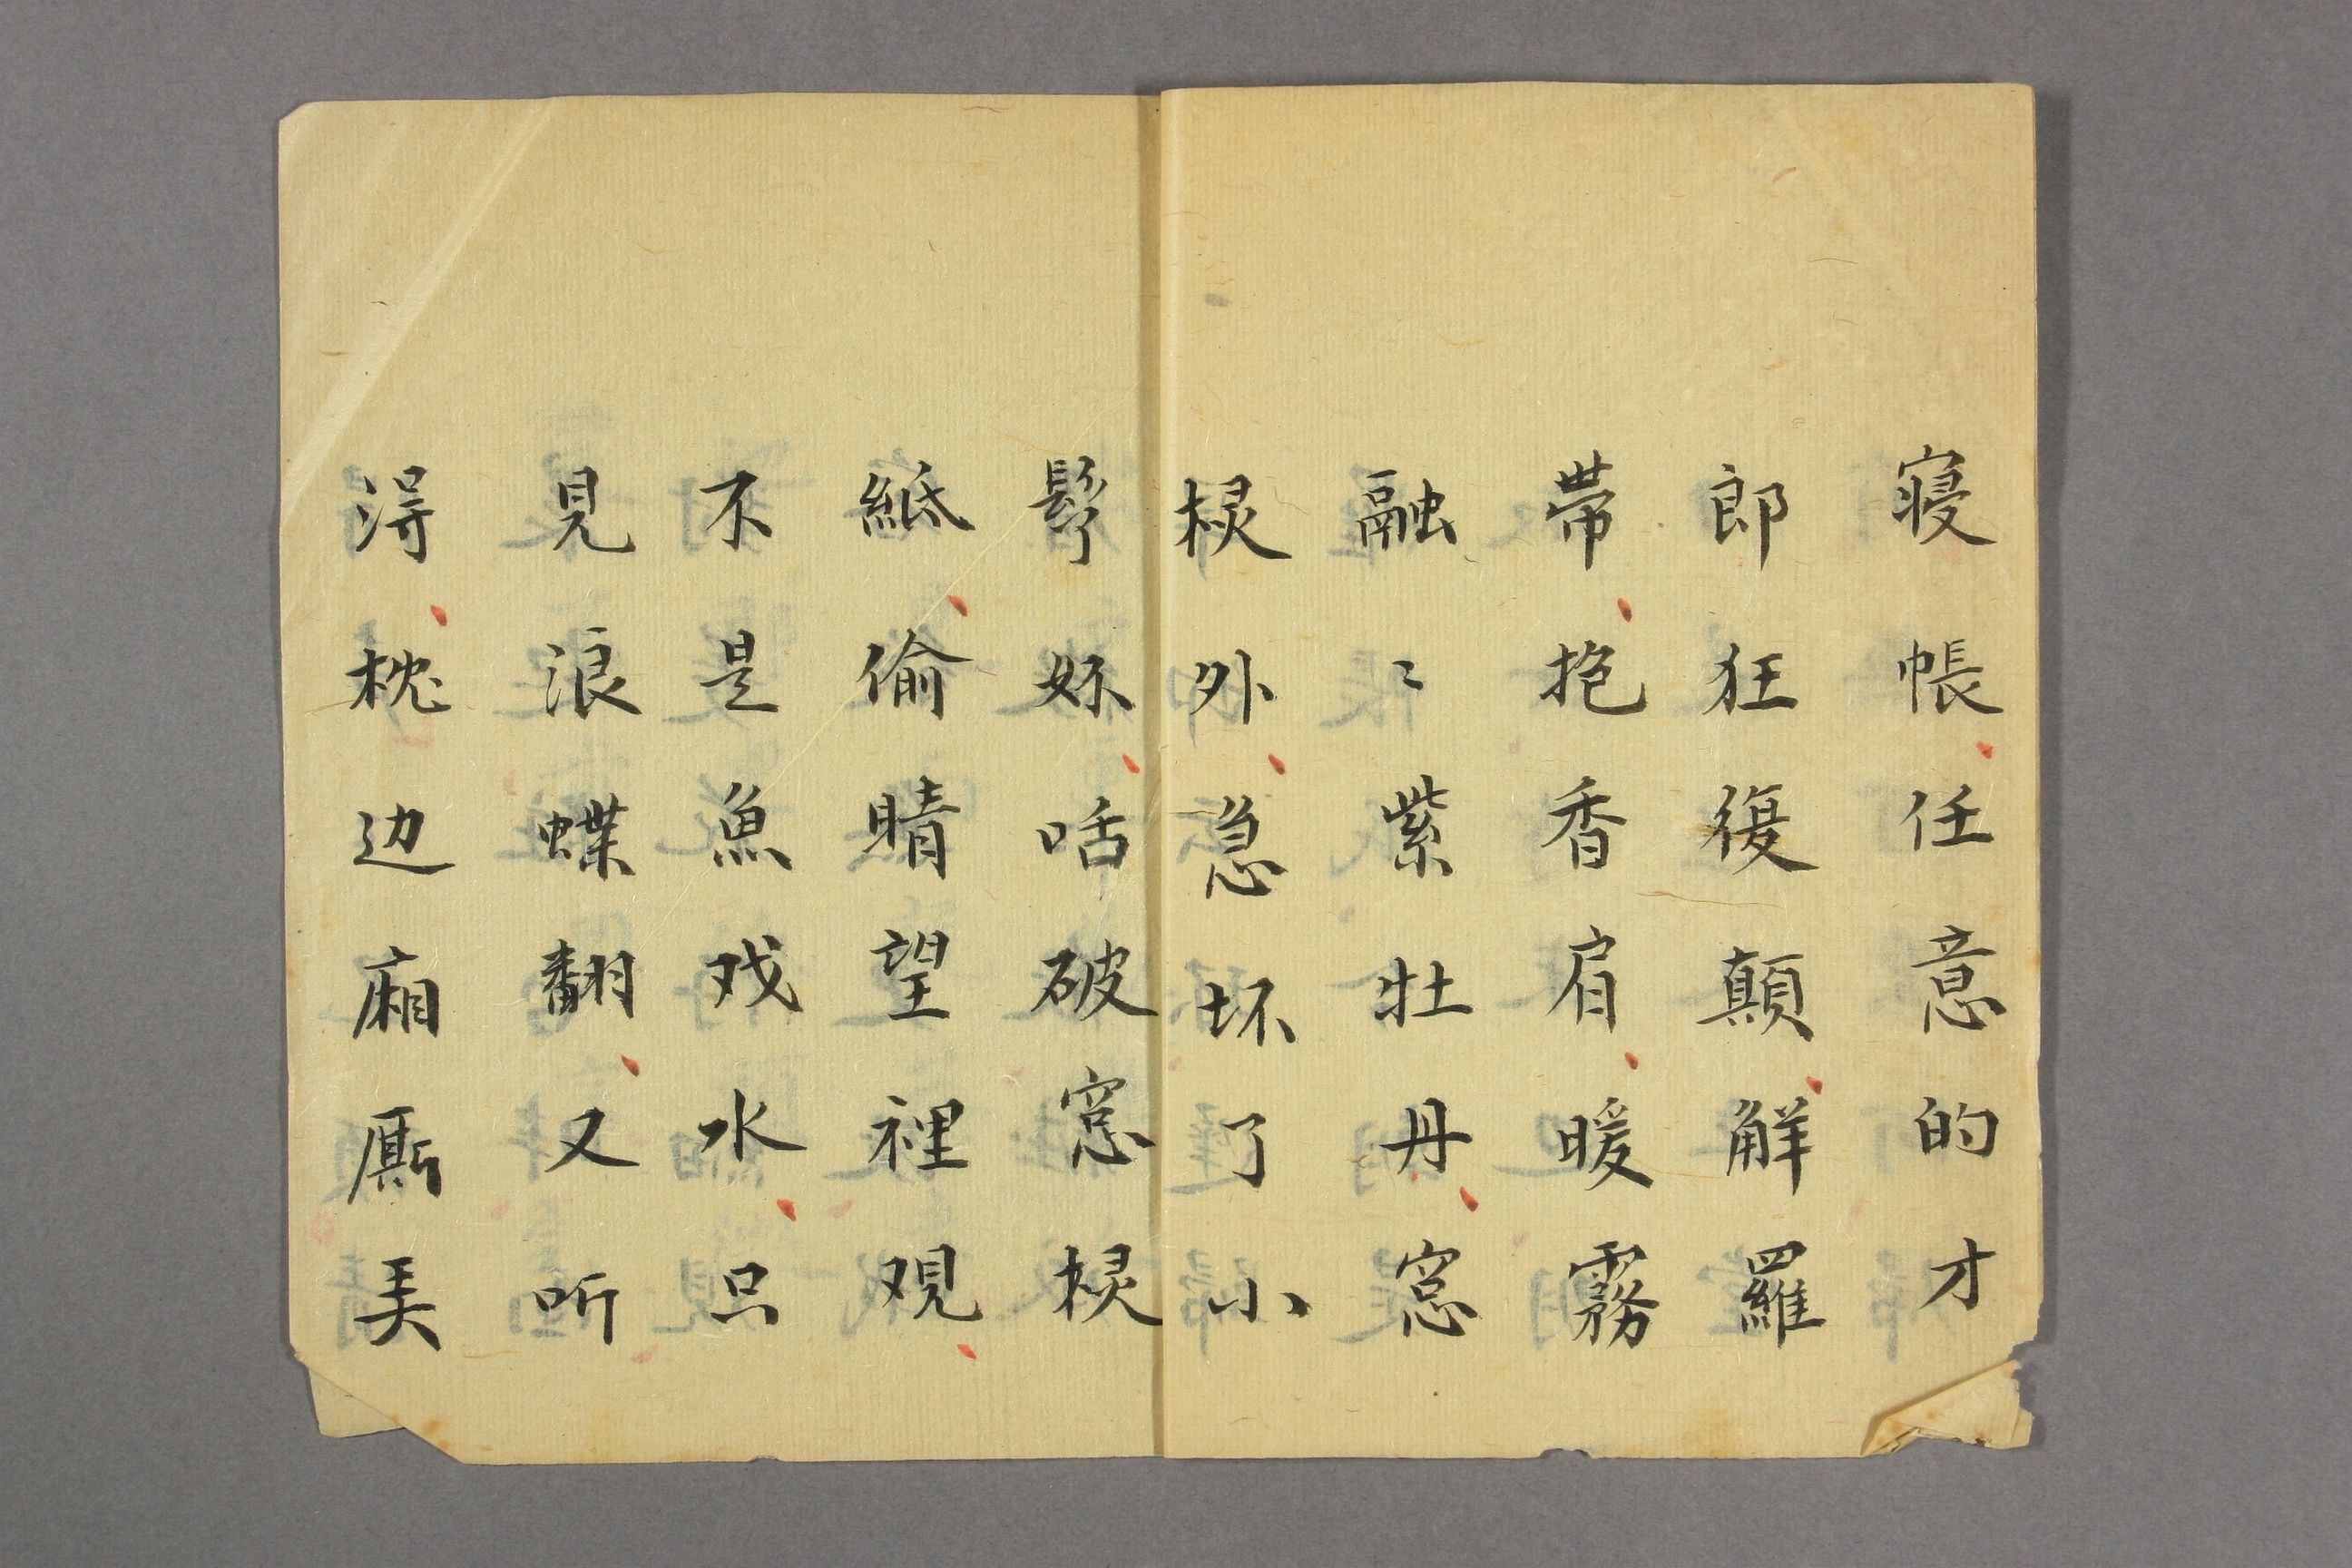 寝帳任意的才
郎狂復顛解羅
帶抱香肩暖霧
融〻紫牡丹窓
棂外急坏了小
髩妳咶破窓棂
紙偷睛望裡观
不是魚戏水只
見浪蝶翻又听
淂枕边廂厮美